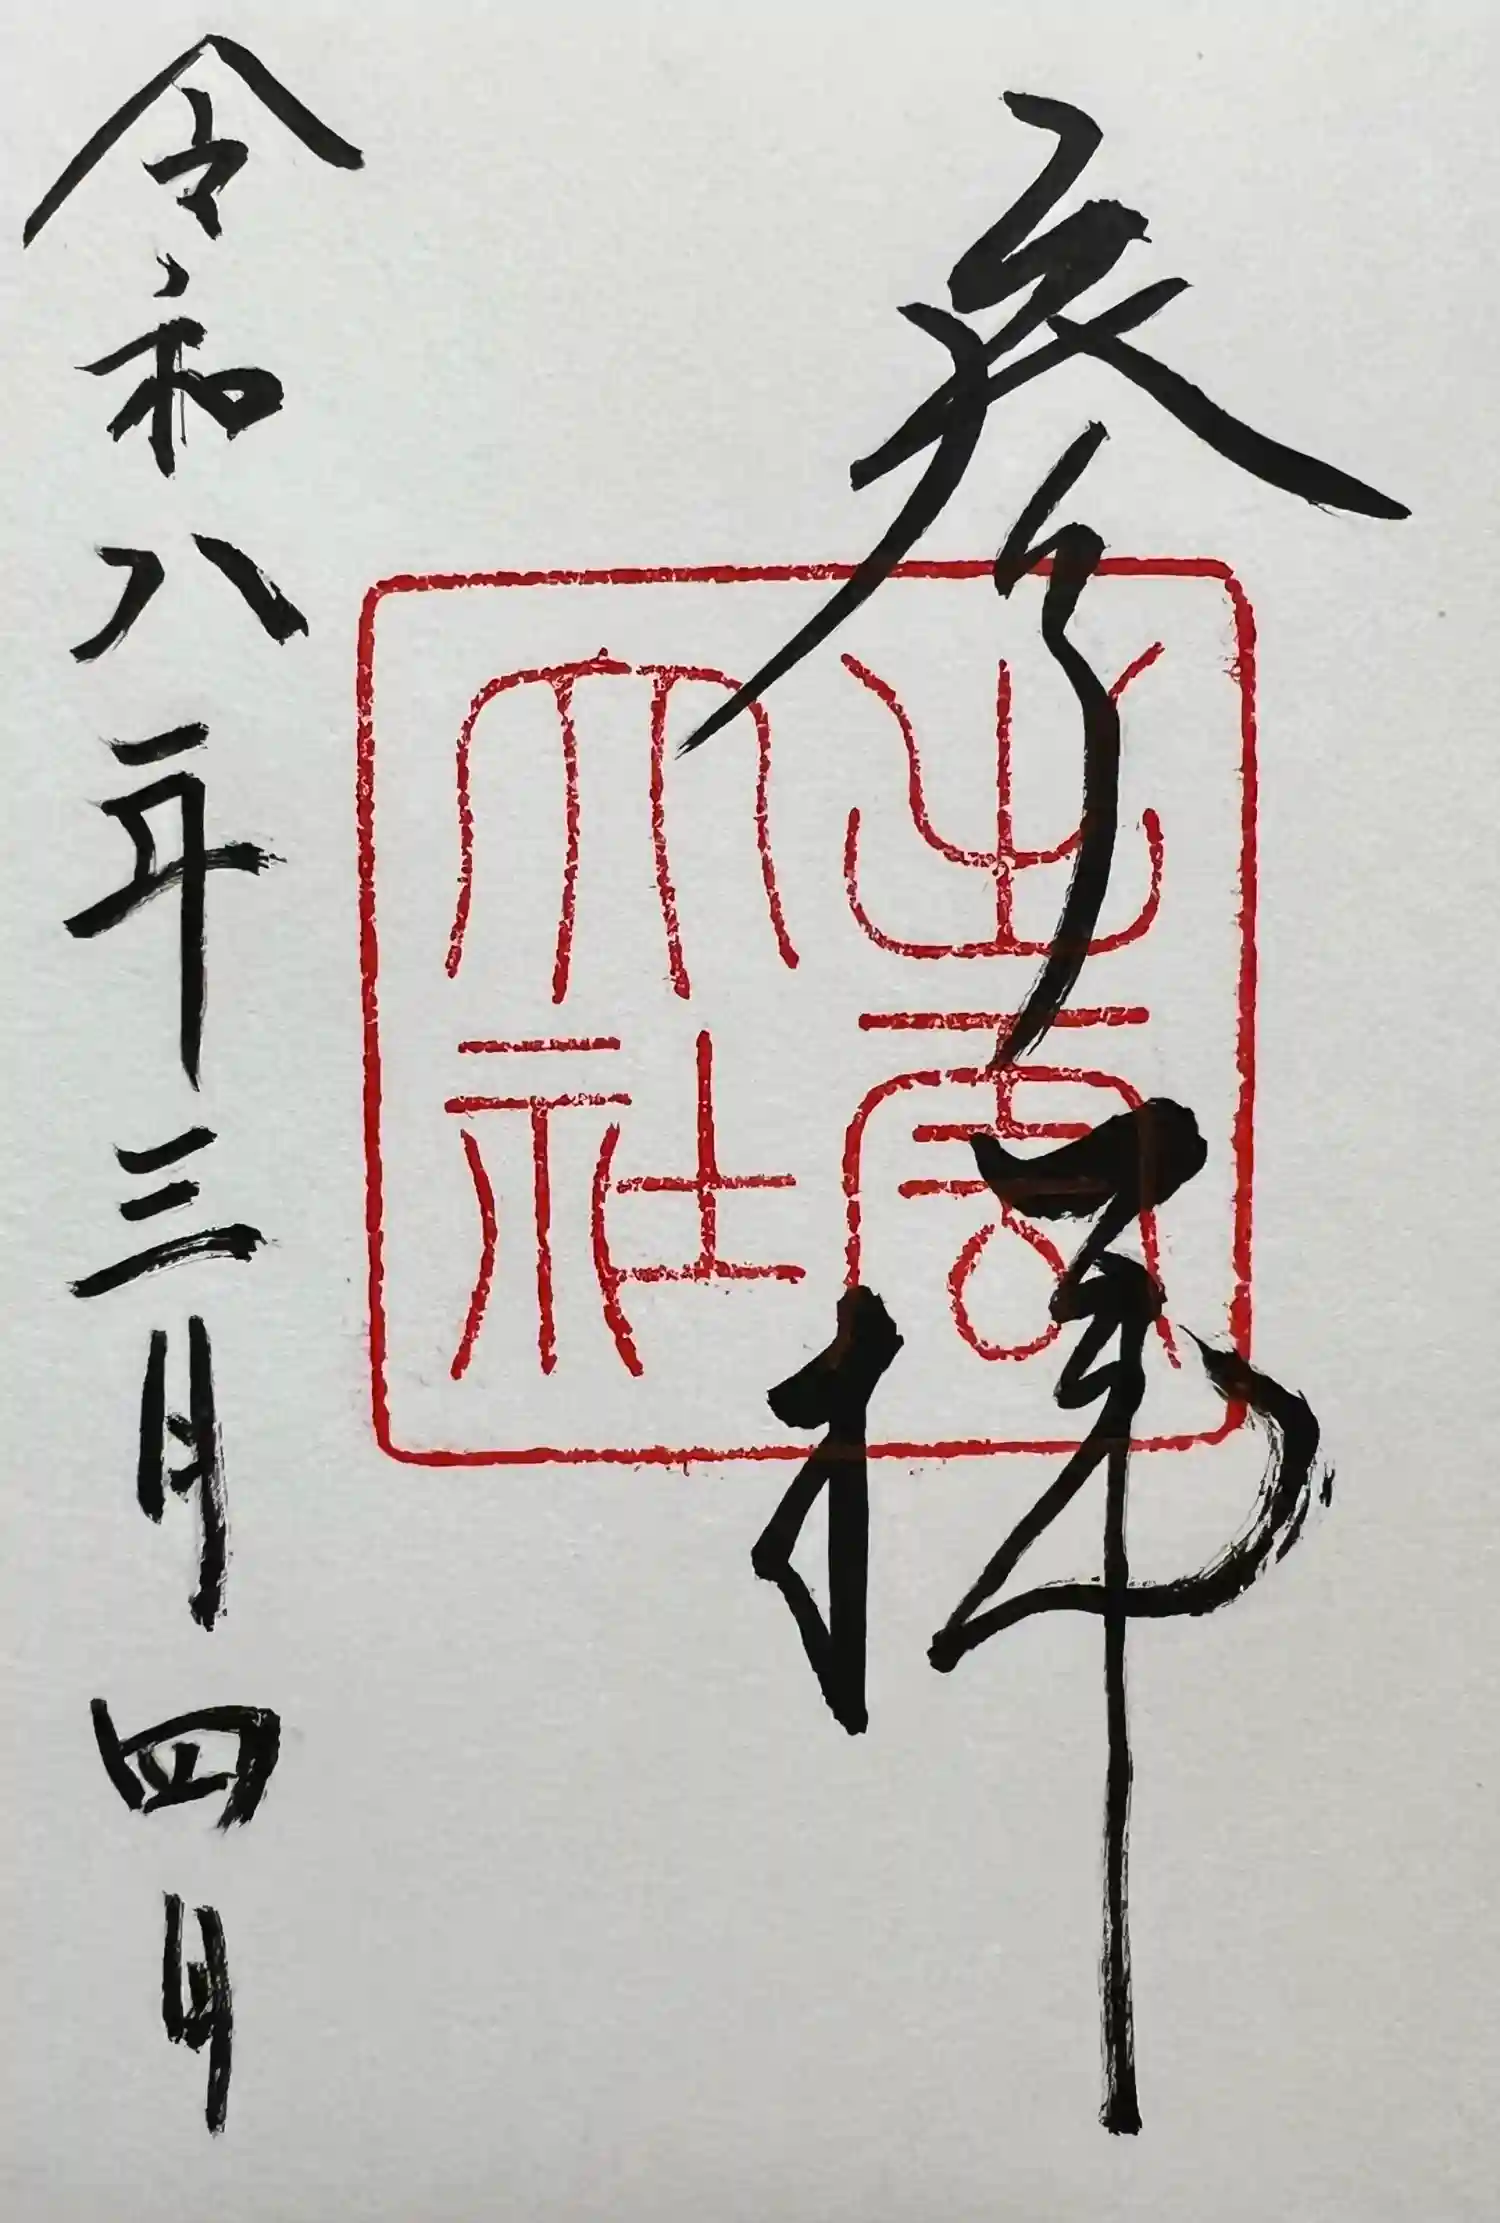 参拝
出雲
大社
令和八年三月四日